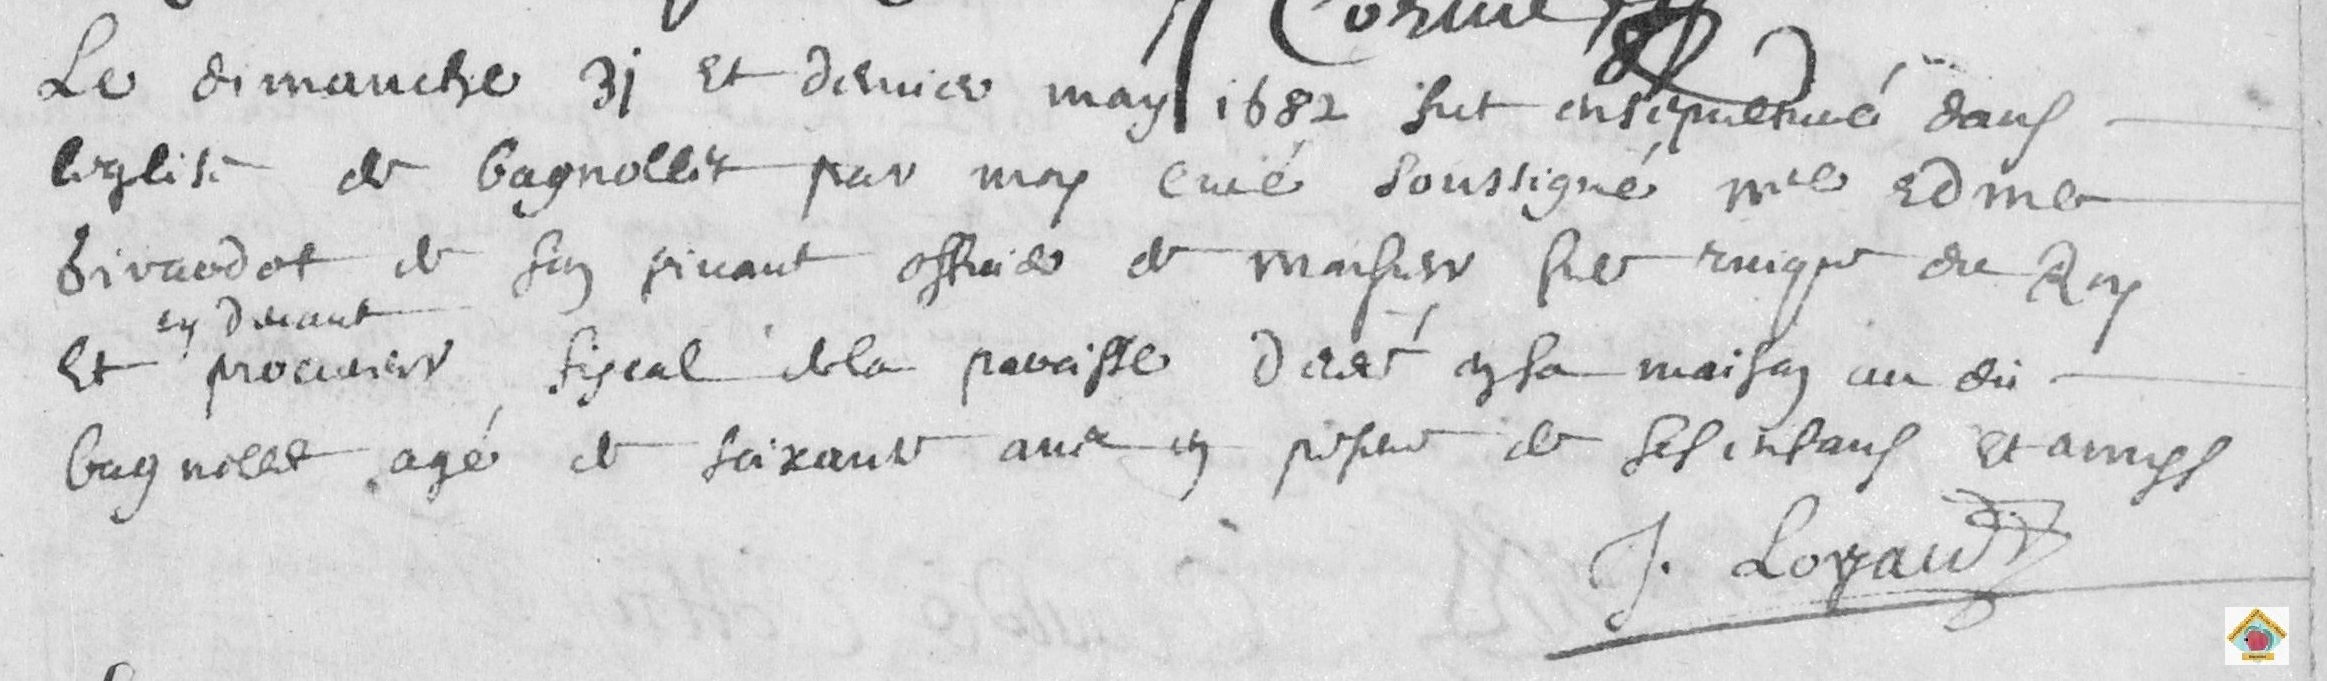 Cornu
Le dimanche 31 et dernier may 1682 fut ensepulturé dans
leglise de bagnollet par moy curé soussigné Mre Edme
Girardot de son vivant officier de du Roy
cy devant
et procureur fiscal dela paroisse decedé en sa maison au dit
bagnollet agé de soixante ans en presence de ses enfans et amys
J. Loyau